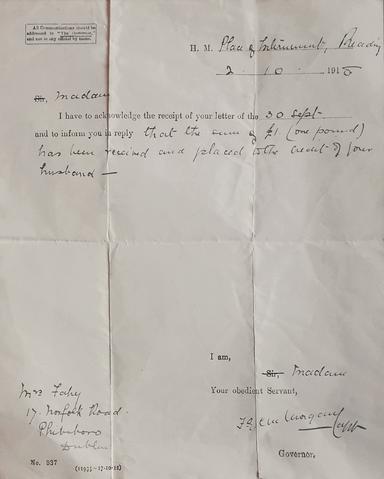 All Communications should be
addressed to "The Governor,"
and not to any official by name.
H. M. Place of Internment, Reading
2 . 10 . 1916
Sir, Madam
I have to acknowledge the receipt of your letter of the 30 Sept
and to inform you in reply that the sum of £1 (one pound)
has been received and placed to the credit of your
husband —
I am,
Sir, Madam
Your obedient Servant,
Capt
Governor.
Mrs Fahy
17. Norfolk Road.
Phibsboro
Dublin
No. 937